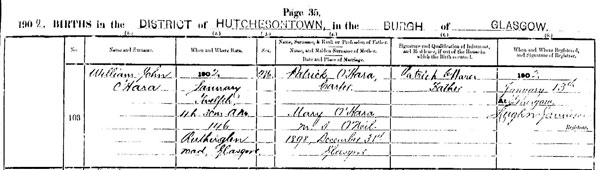 Page 35.
1902. BIRTHS in the DISTRICT of HUTCHESONTOWN, in the BURGH of GLASGOW.
Name and Surname.
When and Where Born.
Sex.
Name, Surname, & Rank or Profession of Father.
Name, and Maiden Surname of Mother.
Date and Place of Marriage.
Signature and Qualification of Informant, and Residence, if out of the House in which the Birth occurred.
When and Where Registered, and Signature of Registrar.
William John
O'Hara
103
1902,
January
Twelfth,
4h. A.M.
146
Rutherglen
road, Glasgow
M.
Patrick O'Hara,
Carter
Mary O'Hara
m.s. O'Neil
1898, December 31st
Glasgow
Patrick O'Hara
Father
1902,
January 13th
At Glasgow
Registrar.